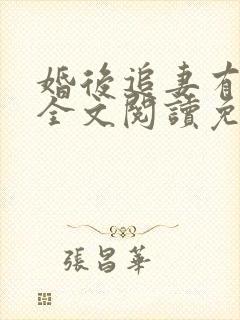 婚後追妻有
全文閱讀免
張昌華